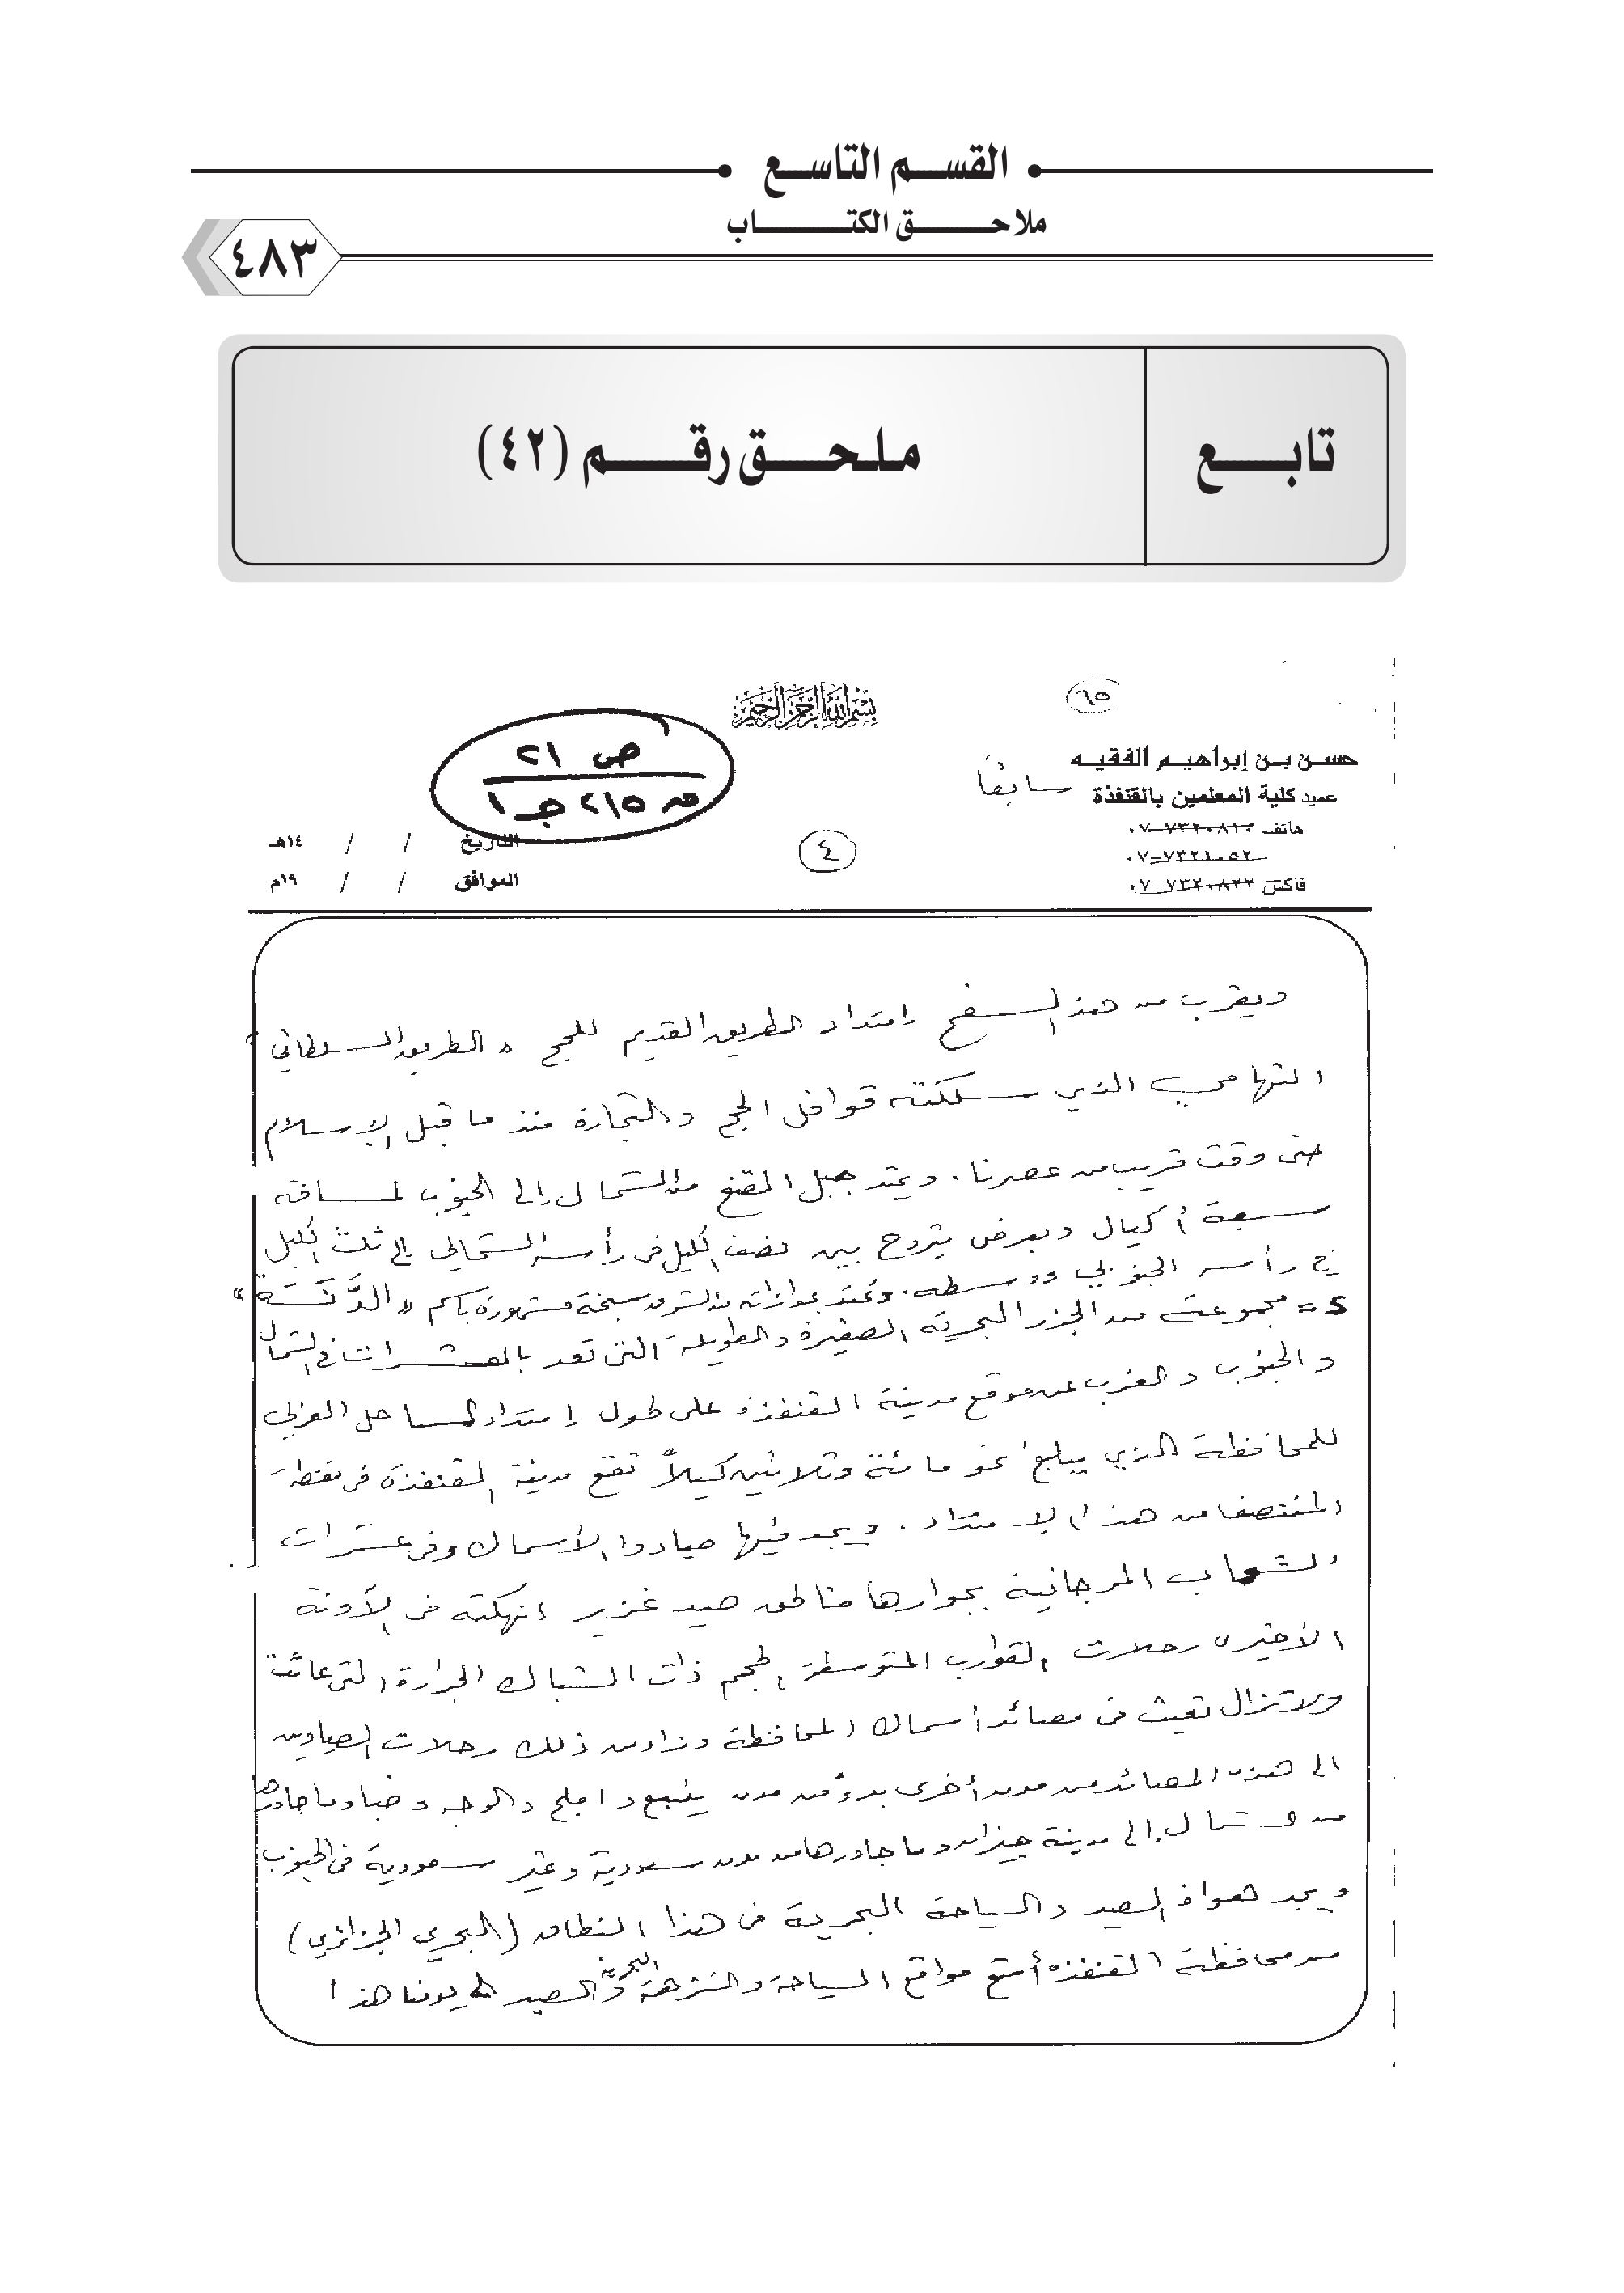 القسم التاسع
ملاحق الكتاب
٤٨٣
تابع
ملحق رقم (٤٢)
٦٥
بسم الله الرحمن الرحيم
ص ٢١
من ٢١٥ جـ ١
حسن بن إبراهيم الفقيه
عميد كلية المعلمين بالقنفذة سابقاً
هاتف ٧٣٢٠٨١٠-٠٧
٧٣٢١٠٥٢-٠٧
فاكس ٧٣٢٠٨٢٢-٠٧
٤
التاريخ / / ١٤هـ
الموافق / / ١٩م
ويقرب من هذا السفح امتداد الطريق القديم للحج « الطريق السلطاني »
التهامي الذي سلكته قوافل الحج والتجارة منذ ما قبل الإسلام
حتى وقت قريب من عصرنا . ويمتد جبل القنع من الشمال إلى الجنوب لمسافة
سبعة أكيال وبعرض يتروح بين نصف الكيل في رأسه الشمالي إلى ثلث الكيل
في رأسه الجنوبي ووسطه . وتمتد بموازاته من الشرق سبخة مشهورة باسم « الدَّنَسَة »
٥ = مجموعة من الجزر البحرية الصغيرة والطويلة التي تعد بالعشرات في الشمال
والجنوب والغرب عن موقع مدينة القنفذة على طول امتداد الساحل الغربي
للمحافظة الذي يبلغ نحو مائة وثلاثين كيلاً تقع مدينة القنفذة في نقطة
المنتصف من هذا الامتداد . ويجد فيها صيادوا الأسماك وفي عشرات
الشعاب المرجانية بجوارها مناطق صيد غزير انهكته في الآونة
الأخيره رحلات القوارب المتوسطة الحجم ذات الشباك الجرارة التي عاثت
ولا تزال تعيث في مصائد أسماك المحافظة وزاد من ذلك رحلات الصيادين
الى هذه المصائد من مدن أخرى بدءً من مدن ينبع واملج والوجه وضبا وما جاورها
من شمال إلى مدينة جيزان وما جاورها من مدن سعودية وغير سعودية في الجنوب
ويجد هواة الصيد والسياحة البحرية في هذا النطاق (البحري الجزائري)
من محافظة القنفذه أمتع مواقع السياحة والنزهة البحرية والصيد إلى يومنا هذا